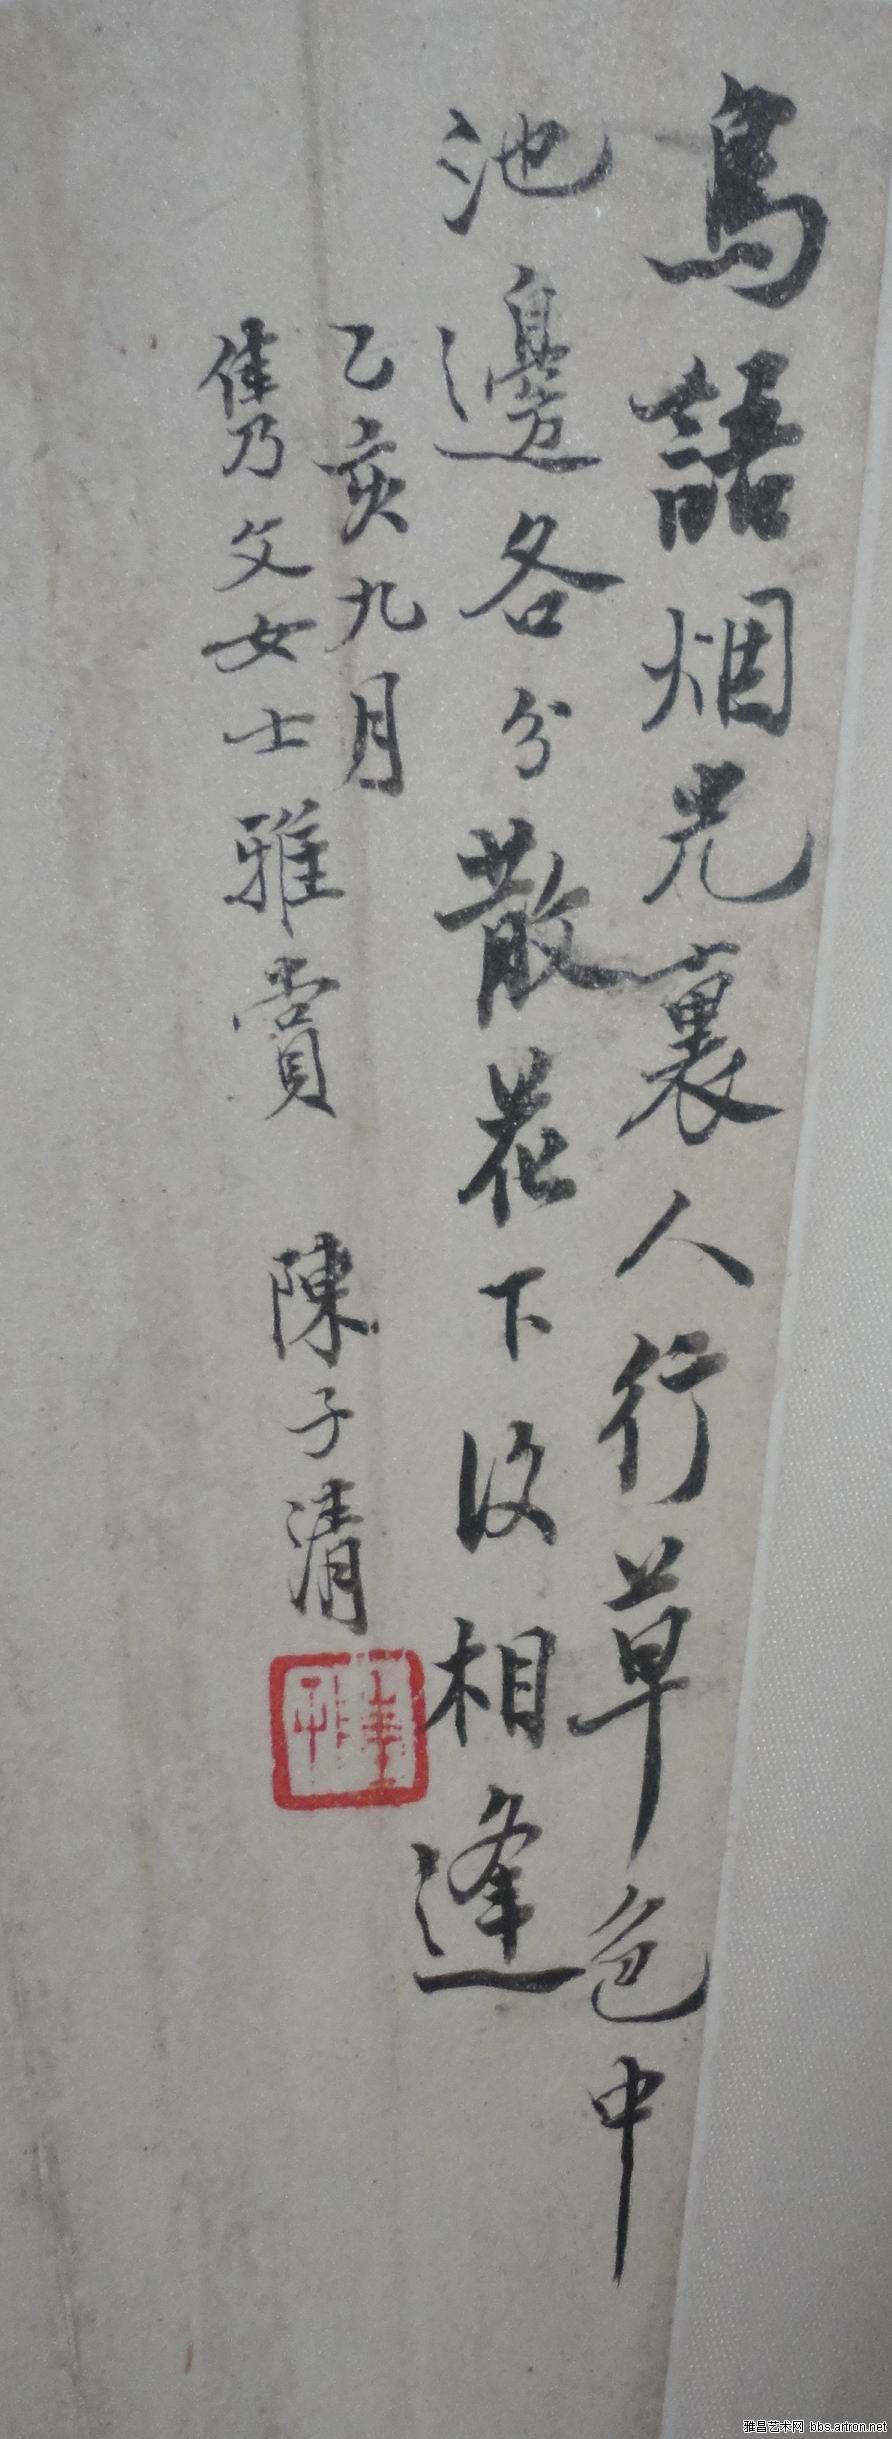 鳥語烟光裏人行草色中
池邊各分散花下復相逢
乙亥九月
乃文女士雅賞 陳子清
雅昌艺术网 bbs.artron.net